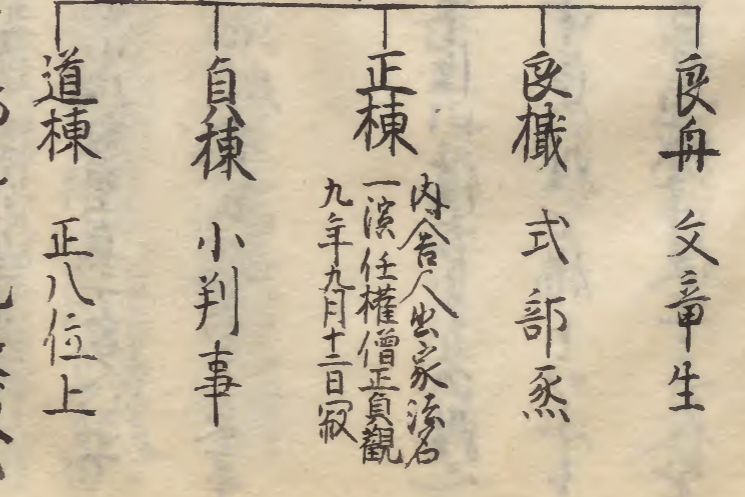 良舟 文章生
良檝 式部烝
正棟
内舎人出家法名
一演任權僧正貞觀
九年九月十二日寂
貞棟 小判事
道棟 正八位上